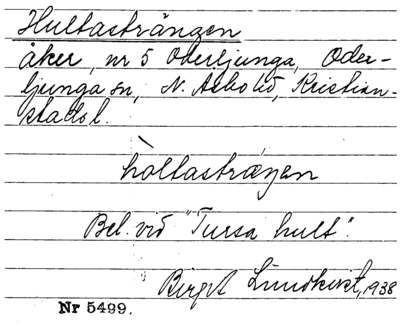 Hultasträngen
åker, nr 5 Oderljunga, Oder-
ljunga sn, N. Åsbo hd, Kristian-
stads l.
hòltasträŋen
Bel. vid "Tursa hult".
Birgit Lundkvist, 1938
Nr 5499.